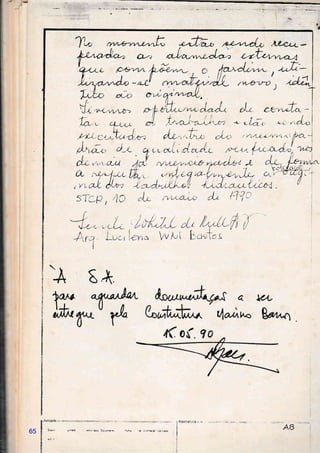 No momento estão sendo recu-
peradas as alamedas externas
que compõem o jardim, uti-
lizando-se material novo, idên-
tico ao original.
Tivemos oportunidade de consta-
tar que os trabalhos estão sendo
executados dentro do mesmo pa-
drão de qualidade verificado nos
demais já mencionados e de forma
a respeitar integralmente os origi-
nais ladrilhos hidráulicos.
STCR, 10 de maio de 1990
Arq. Lucilena W M Bastos
À SA.
para aguardar documentação a ser
entregue pela Construtora Marino Barros.
15.05.90
65
AB